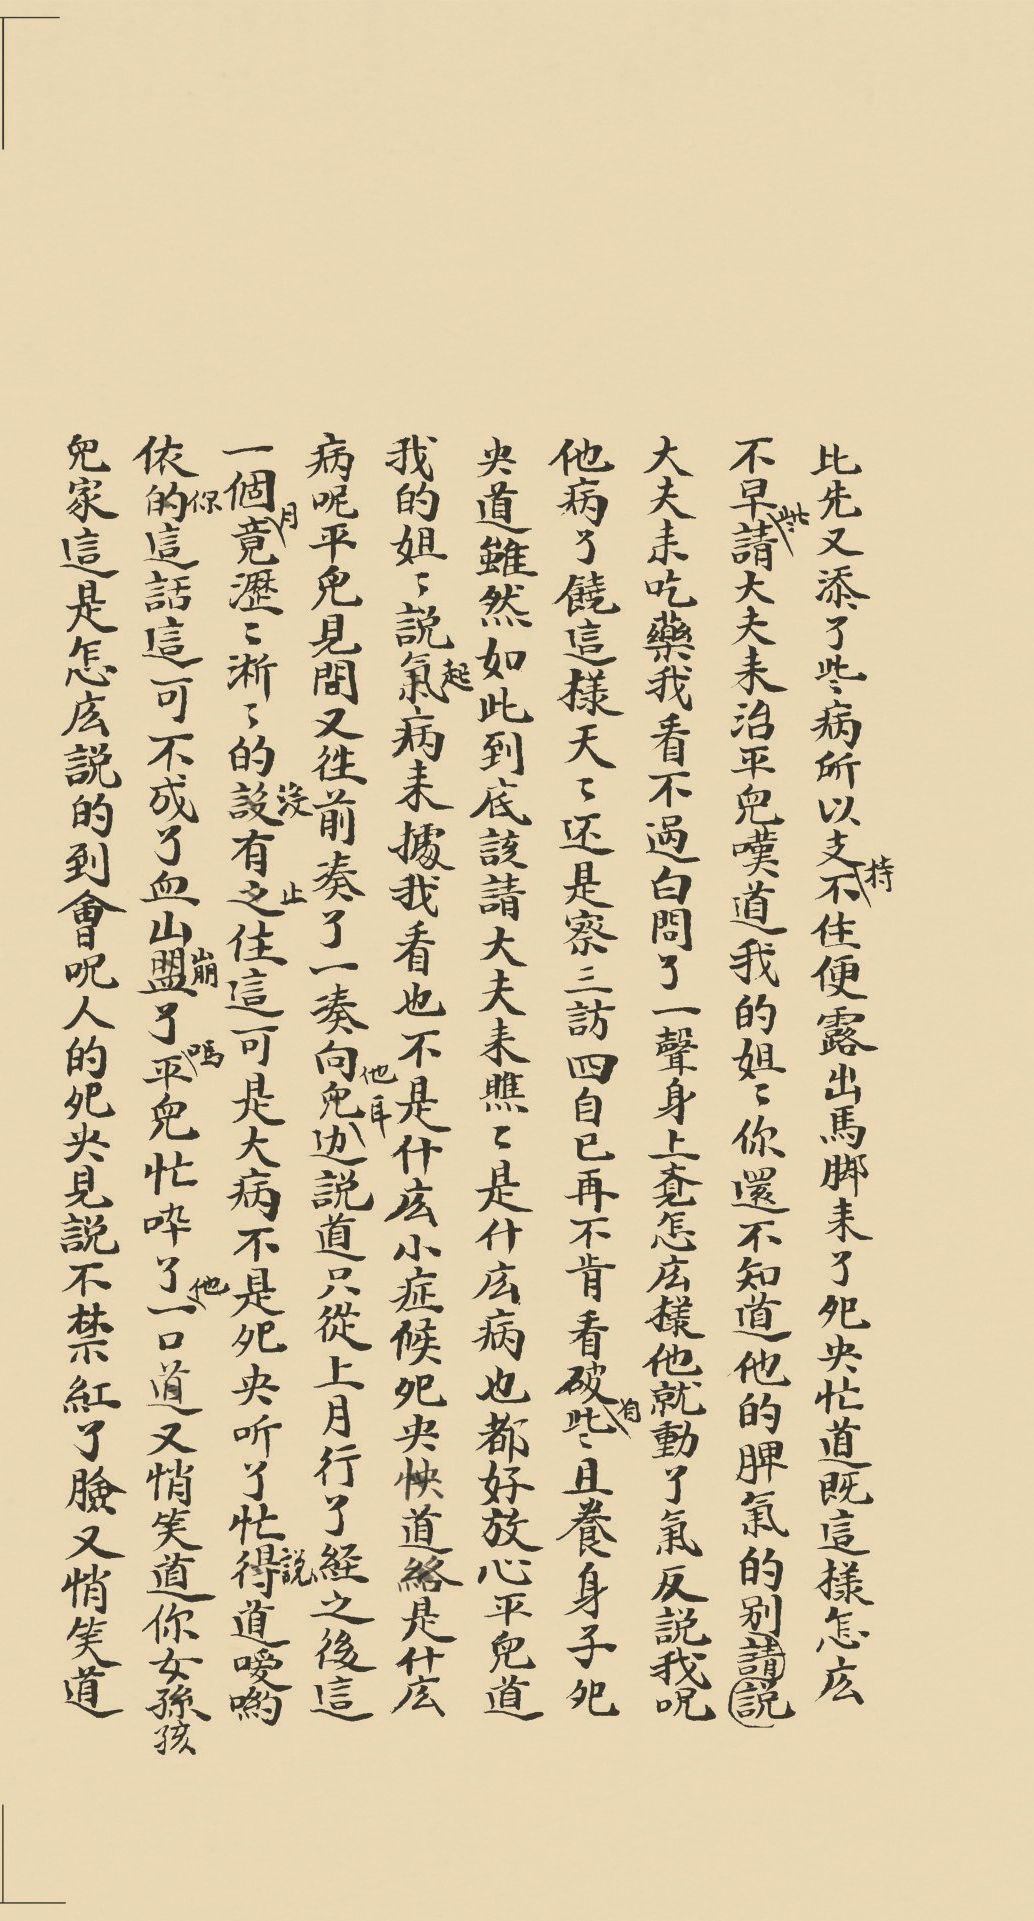 比先又添了些病所以支持不住便露出馬脚来了夗央忙道既這樣怎広
不早些請大夫来治平兒嘆道我的姐〻你還不知道他的脾氣的别請説
大夫来吃藥我看不過白問了一聲身上竟怎広樣他就動了氣反説我呪
他病了饒這樣天〻还是察三訪四自已再不肯看破些〻自且養身子夗
央道雖然如此到底該請大夫来瞧〻是什広病也都好放心平兒道
我的姐〻説起氣病来據我看也不是什広小症候夗央怏道絡是什広
病呢平兒見問又徃前凑了一凑向他耳兒边説道只從上月行了経之後這
一個月竟瀝〻淅〻的設没有之止住這可是大病不是夗央听了忙得説道嗳喲
依的你這話這可不成了血山盟崩了嗎平兒忙啐了他一口道又悄笑道你女孫孩
兒家這是怎広説的到會呪人的夗央見説不禁紅了臉又悄笑道